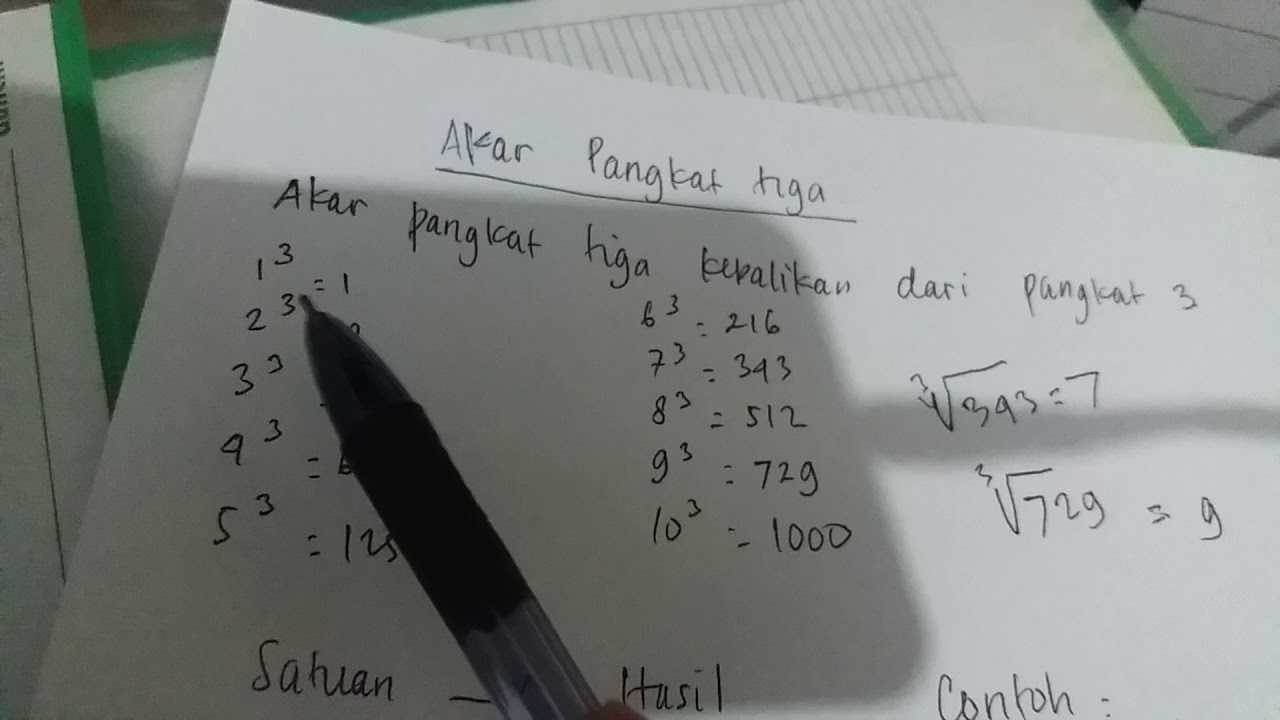 Akar Pangkat tiga
Akar pangkat tiga kebalikan dari pangkat 3
1³ = 1
2³
3³
4³ =
5³ = 125
6³ = 216
7³ = 343
8³ = 512
9³ = 729
10³ = 1000
³√343 = 7
³√729 = 9
Satuan — Hasil
Contoh :